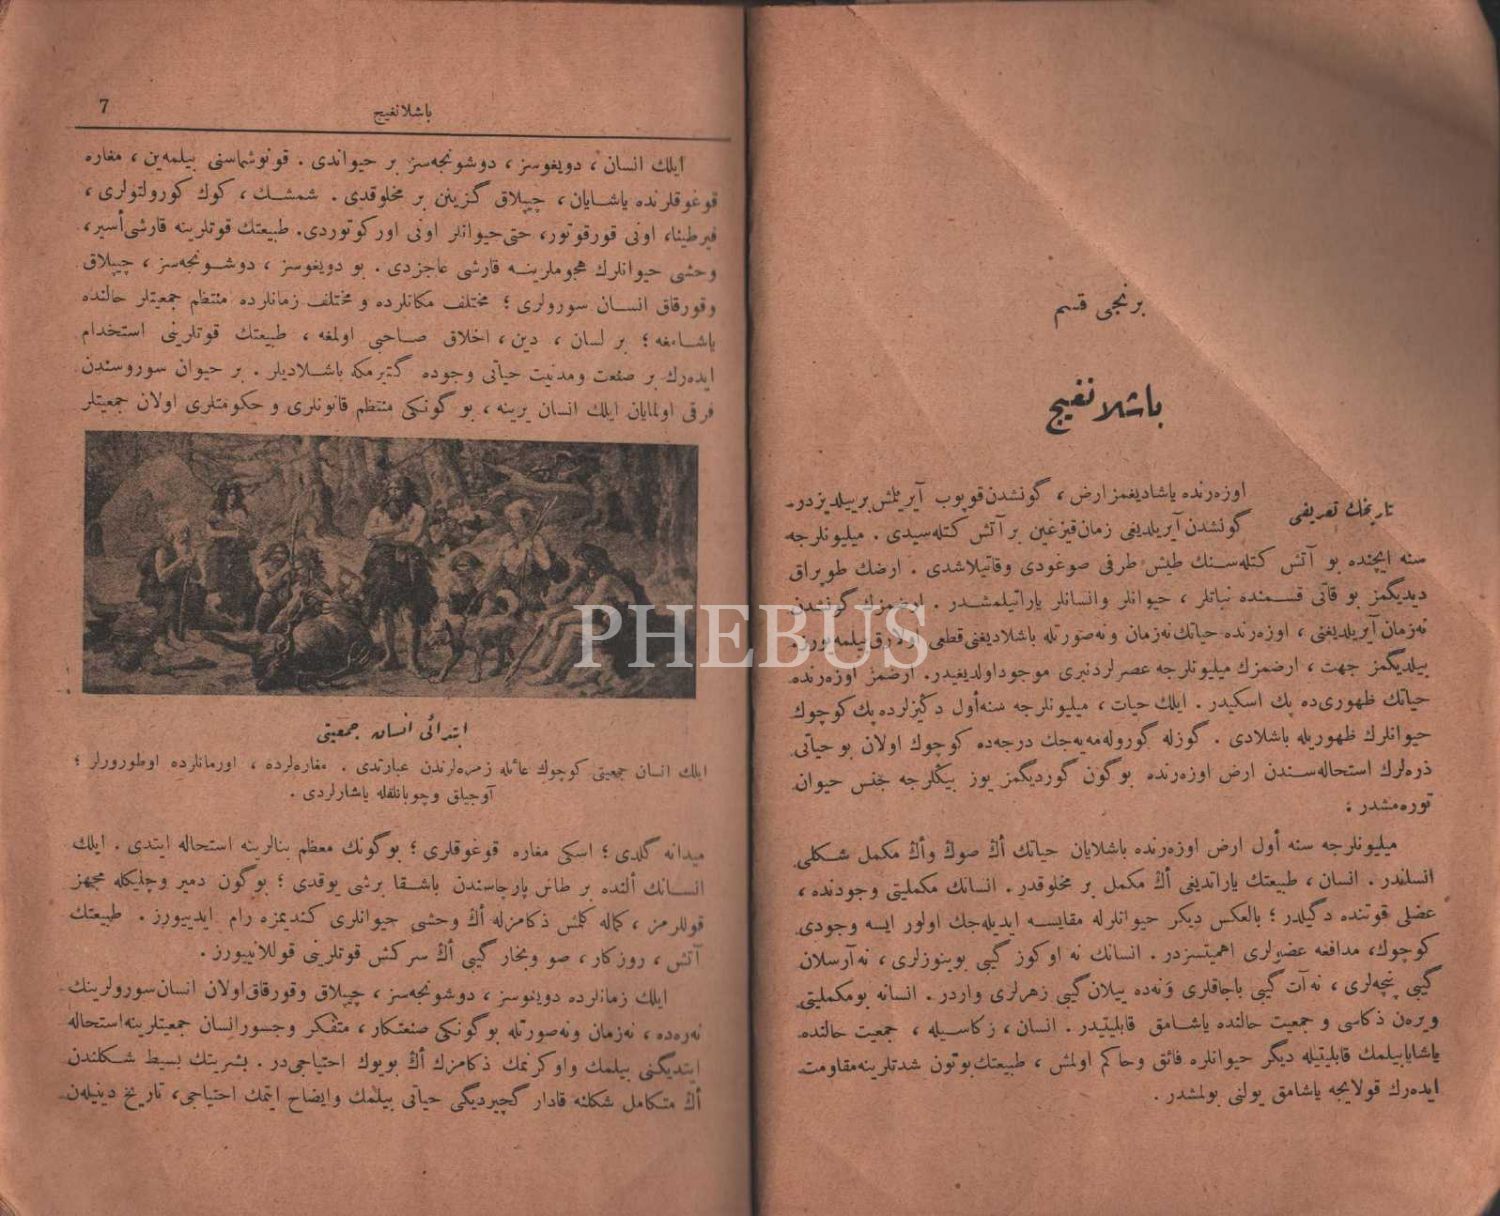 برنجی قسم
باشلانغیج
تاریخك تعریفی
اوزه‌رنده یاشادیغمز ارض ، گونشدن قوپوب آیریلمش بر ییلدیزدر.
گونشدن آیریلدیغی زمان قیزغین بر آتش كتله‌سیدی . میلیونلرجه
سنه ایچنده بو آتش كتله‌سنك طیش طرفی صوغودی وقاتیلاشدی . ارضك طوپراق
دیدیگمز بو قاتی قسمنده نباتلر ، حیوانلر وانسانلر یاراتیلمشدر . ارضمزك گونشدن
نه‌زمان آیریلدیغی ، اوزه‌رنده حیاتك نه‌زمان ونه‌صورتله باشلادیغنی قطعی اولارق بیلمه‌یورز.
بیلدیگمز جهت ، ارضمزك میلیونلرجه عصرلردنبری موجود اولدیغیدر. ارضمز اوزه‌رنده
حیاتك ظهوری‌ده پك اسكیدر . ایلك حیات ، میلیونلرجه سنه أول دكیزلرده پك كوچوك
حیوانلرك ظهوریله باشلادی . گوزله گوروله‌مه‌یه‌جك درجه‌ده كوچوك اولان بو حیاتی
ذره‌لرك استحاله‌سندن ارض اوزه‌رنده بوگون گوردیگمز یوز بیڭلرجه جنس حیوان
توره‌مشدر :
میلیونلرجه سنه أول ارض اوزه‌رنده باشلایان حیاتك أڭ صوك وأڭ مكمل شكلی
انساندر . انسان ، طبیعتك یاراتدیغی أڭ مكمل بر مخلوقدر . انسانك مكملیتی وجودنده ،
عضلی قوتنده دگیلدر ؛ بالعكس دیكر حیوانلرله مقایسه ایدیله‌جك اولور ایسه وجودی
كوچوك، مدافعه عضولری اهمیتسزدر . انسانك نه اوكوز گیبی بوینوزلری ، نه‌آرسلان
گیبی پنچه‌لری ، نه‌آت گیبی باجاقلری ونه‌ده ییلان گیبی زهرلری واردر . انسانه بومكملیتی
ویره‌ن ذكاسی و جمعیت حالنده یاشامق قابلیتیدر . انسان ، زكاسیله ، جمعیت حالنده
یاشایابیلمك قابلیتیله دیگر حیوانلره فائق وحاكم اولمش ، طبیعتك بوتون شدتلرینه مقاومت
ایده‌رك قولایجه یاشامق یولنی بولمشدر .
7
باشلانغیج
ایلك انسان ، دویغوسز ، دوشونجه‌سز بر حیواندی . قونوشماسنی بیلمه‌ین ، مغاره
قوغوقلرنده یاشایان ، چیپلاق گزینن بر مخلوقدی . شمشك ، كوك كورولتولری ،
فیرطینا، اونی قورقوتور، حتی حیوانلر اونی اوركوتوردی. طبیعتك قوتلرینه قارشی أسیر،
وحشی حیوانلرك هجوملرینه قارشی عاجزدی . بو دویغوسز ، دوشونجه‌سز ، چیپلاق
وقورقاق انسان سورولری ؛ مختلف مكانلرده و مختلف زمانلرده منتظم جمعیتلر حالنده
یاشامغه ؛ بر لسان ، دین ، اخلاق صاحبی اولمغه ، طبیعتك قوتلرینی استخدام
ایده‌رك بر صنعت ومدنیت حیاتی وجوده گتیرمكه باشلادیلر . بر حیوان سوروسندن
فرقی اولمایان ایلك انسان یرینه ، بو گونكی منتظم قانونلری و حكومتلری اولان جمعیتلر
ابتدائی انسان جمعیتی
ایلك انسان جمعیتی كوچوك عائله زمره‌لرندن عبارتدی . مغاره‌لرده ، اورمانلرده اوطورورلر ؛
آوجیلق وچوبانلقله یاشارلردی .
میدانه گلدی ؛ اسكی مغاره قوغوقلری ؛ بوگونك معظم بنالرینه استحاله ایتدی . ایلك
انسانك ألنده بر طاش پارچاسندن باشقا برشی یوقدی ؛ بوگون دمیر وچلیكله مجهز
قوللرمز ، كماله كلمش ذكامزله أڭ وحشی حیوانلری كندیمزه رام ایدییورز . طبیعتك
آتش ، روزكار ، صو وبخار گیبی أڭ سركش قوتلرینی قوللانییورز .
ایلك زمانلرده دویغوسز ، دوشونجه‌سز ، چیپلاق وقورقاق اولان انسان سورولرینك
نه‌ره‌ده ، نه‌زمان ونه‌صورتله بوگونكی صنعتكار ، متفكر وجسور انسان جمعیتلرینه استحاله
ایتدیگنی بیلمك واوكرنمك ذكامزك أڭ بویوك احتیاجی‌در . بشریتك بسیط شكلندن
أڭ متكامل شكلنه قادار گچیردیگی حیاتی بیلمك وایضاح ایتمك احتیاجی، تاریخ دینیله‌ن
PHEBUS